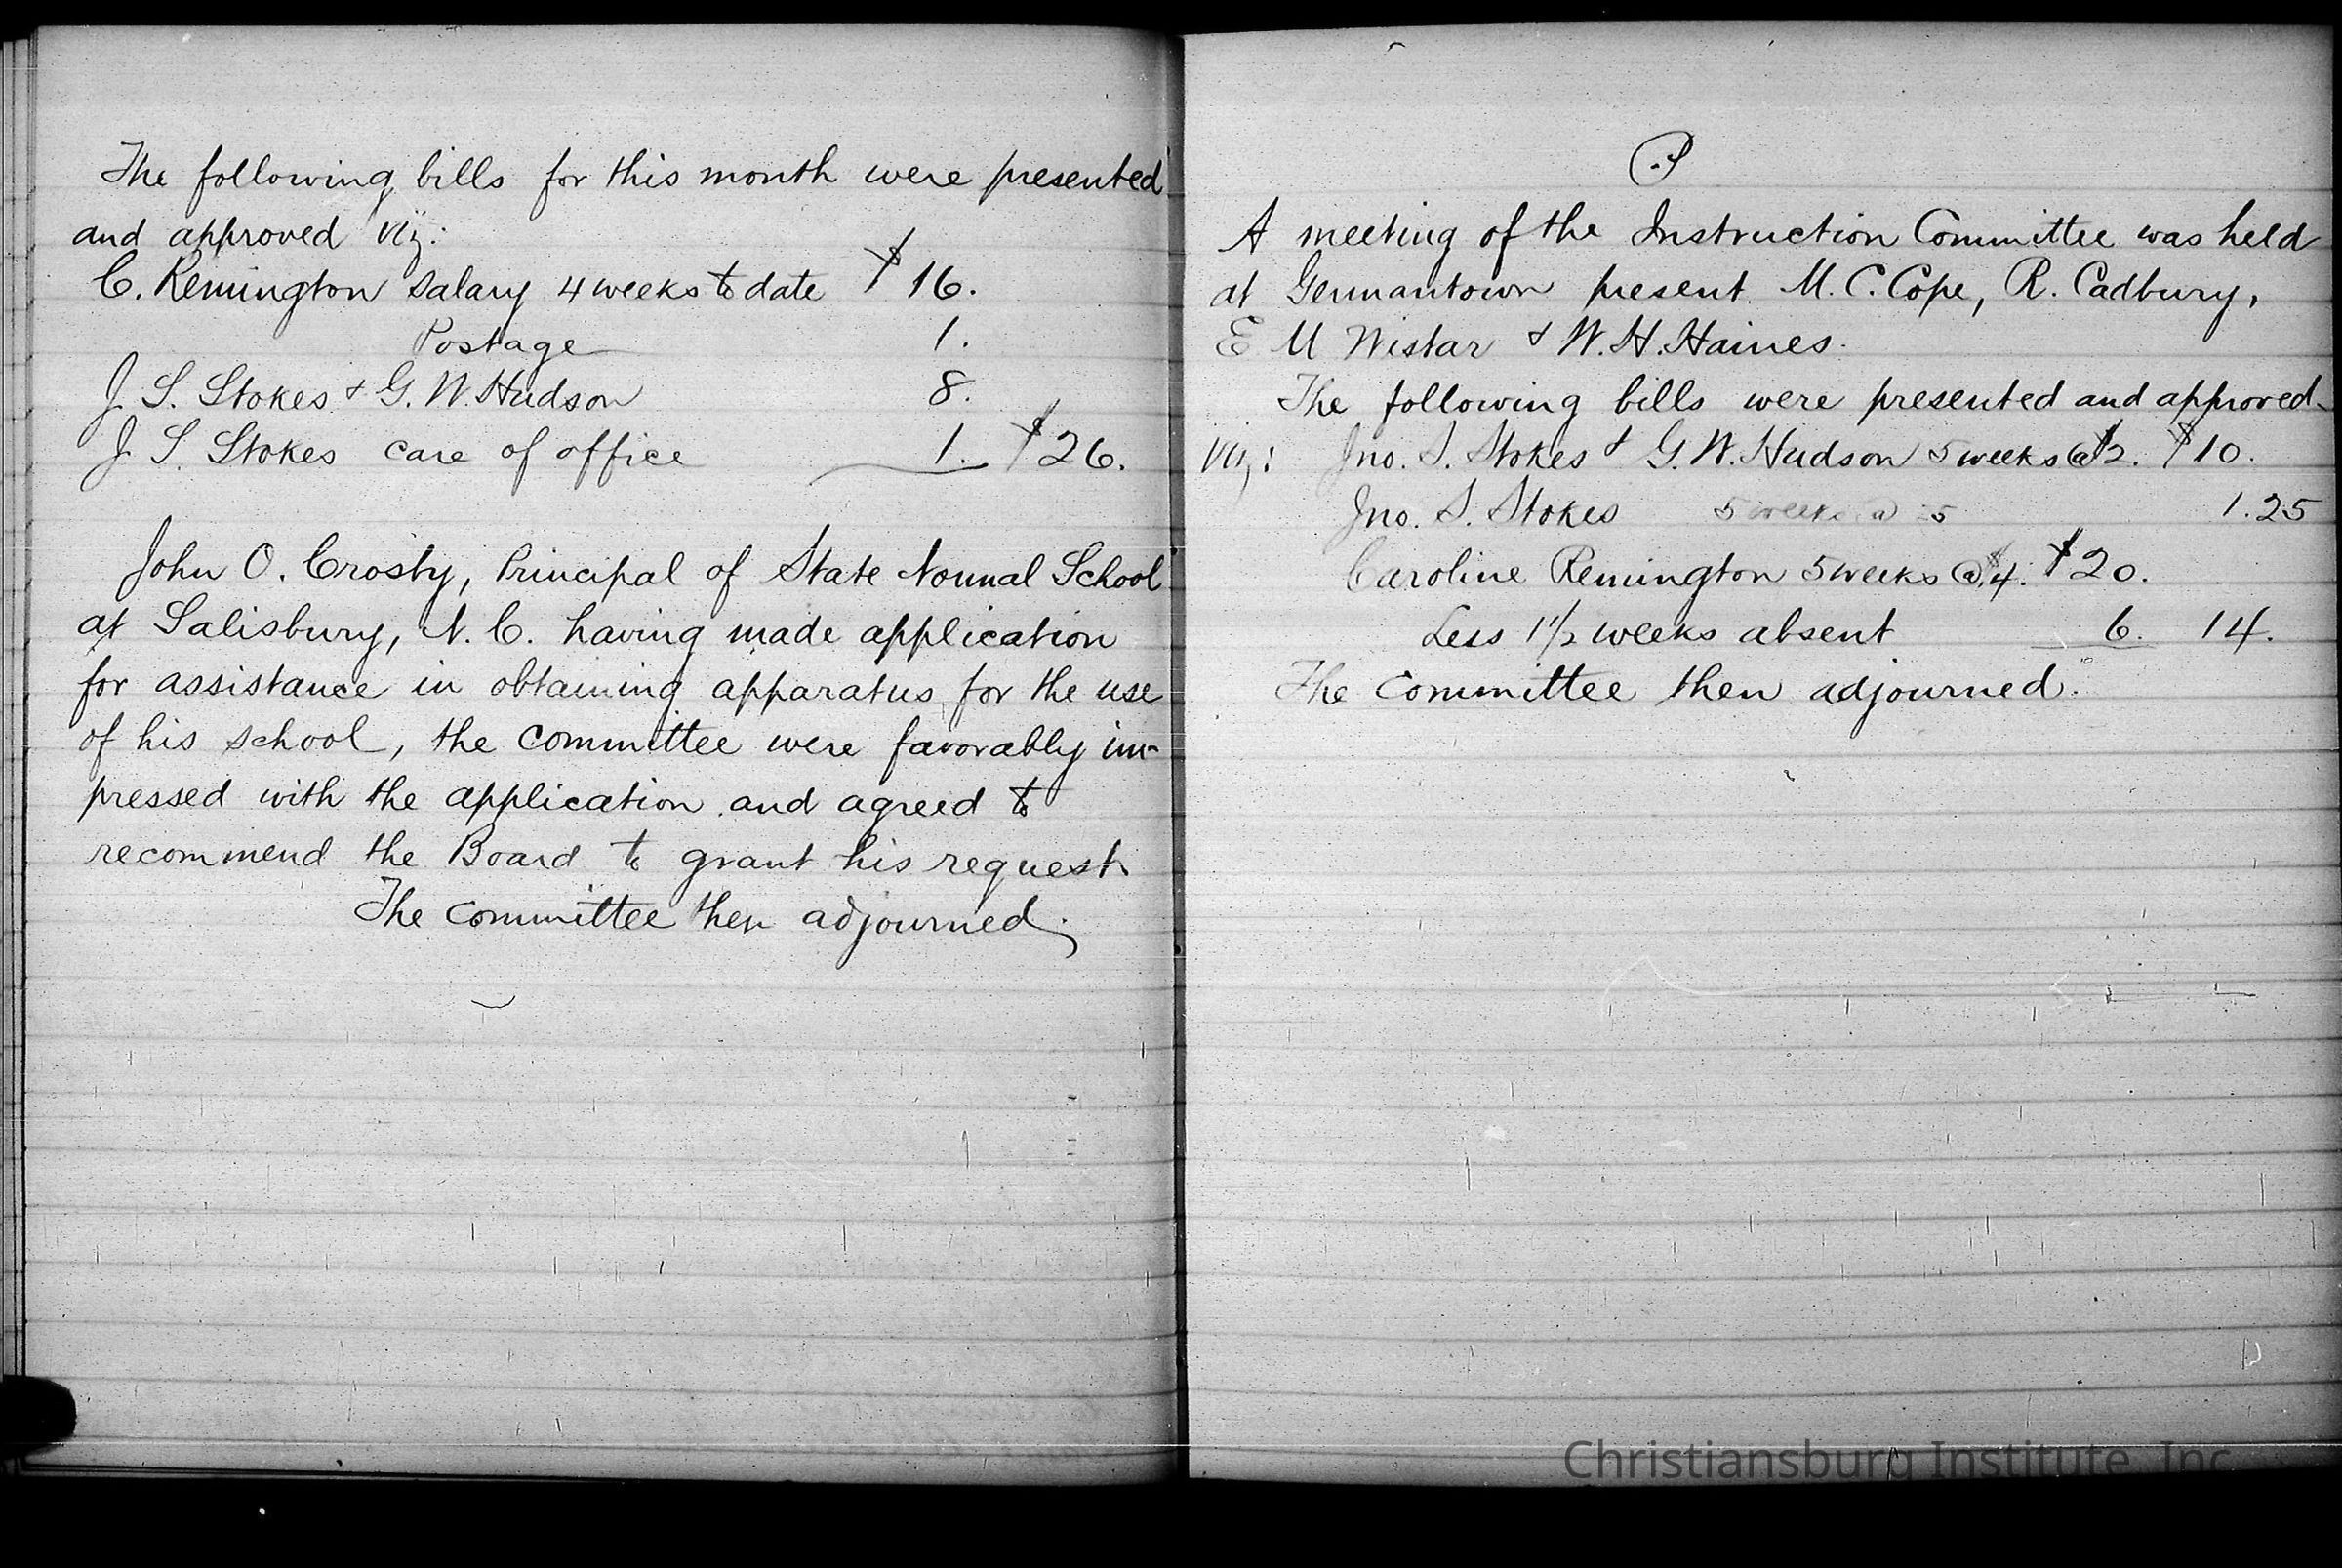 The following bills for this month were presented
and approved viz:
C. Remington Salary 4 weeks to date $16.
Postage 1.
J. S. Stokes & G. W. Hudson 8.
J. S. Stokes care of office 1. $26.
John O. Crosby, Principal of State Normal School
at Salisbury, N. C. having made application
for assistance in obtaining apparatus for the use
of his school, the committee were favorably im-
pressed with the application and agreed to
recommend the Board to grant his request.
The committee then adjourned.
A meeting of the Instruction Committee was held
at Germantown present M. C. Cope, R. Cadbury,
E M Wistar & W. H. Haines.
The following bills were presented and approved
viz: Jno. S. Stokes & G. W. Hudson 5 weeks @ $2. $10.
Jno. S. Stokes 5 weeks @ 25 1.25
Caroline Remington 5 weeks @ $4. $20.
Less 1 1/2 weeks absent 6. 14.
The committee then adjourned.
Christiansburg Institute, Inc.